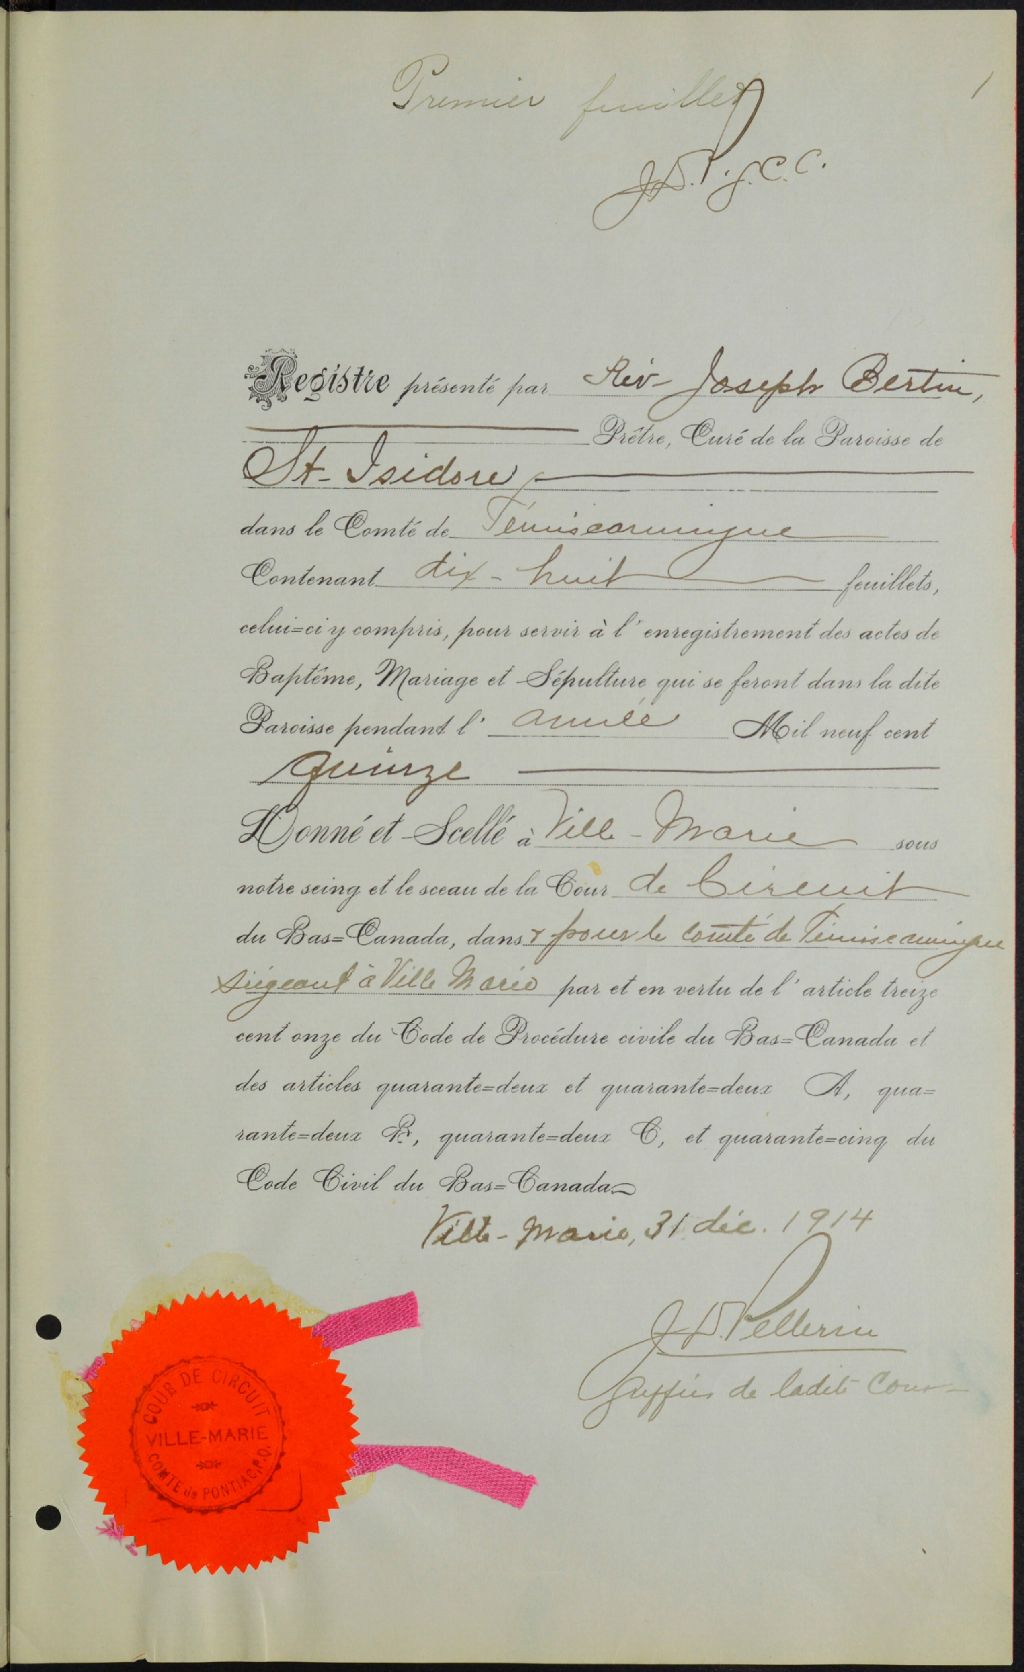 Premier feuillet
1
J.D.P. g.C.C.
Registre présenté par Rév- Joseph Bertin,
Prêtre, Curé de la Paroisse de
St-Isidore
dans le Comté de Témiscamingue
Contenant dix-huit feuillets,
celui=ci y compris, pour servir à l'enregistrement des actes de
Baptême, Mariage et Sépulture qui se feront dans la dite
Paroisse pendant l'année Mil neuf cent
quinze
Donné et Scellé à Ville-Marie sous
notre seing et le sceau de la Cour de Circuit
du Bas=Canada, dans & pour le comté de Témiscamingue
siégeant à Ville Marie par et en vertu de l'article treize
cent onze du Code de Procédure civile du Bas=Canada et
des articles quarante=deux et quarante=deux A, qua=
rante=deux B, quarante=deux C, et quarante=cinq du
Code Civil du Bas=Canada
Ville-Marie, 31 déc. 1914
J.D. Pellerin
Greffier de ladite Cour
COUR DE CIRCUIT
VILLE-MARIE
COMTÉ de PONTIAC P.Q.